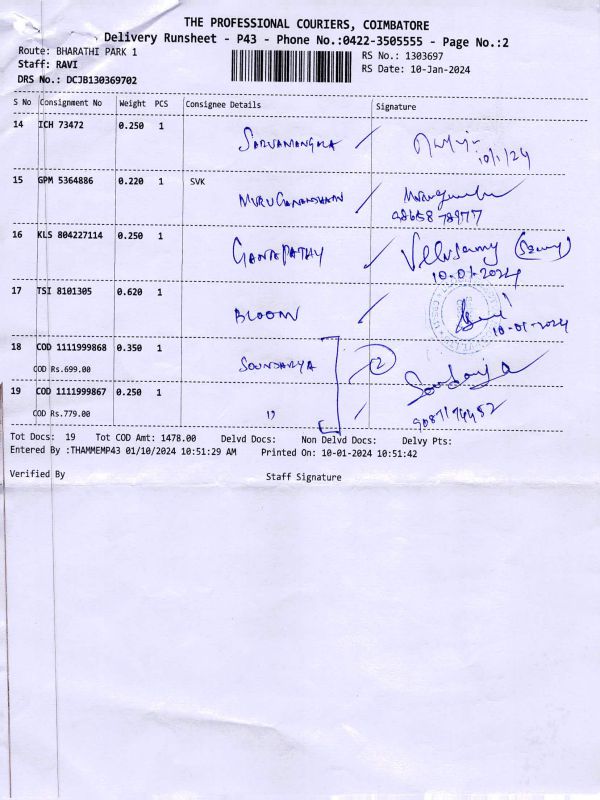 THE PROFESSIONAL COURIERS, COIMBATORE
Delivery Runsheet - P43 - Phone No.:0422-3505555 - Page No.:2
Route: BHARATHI PARK 1
RS No.: 1303697
Staff: RAVI
RS Date: 10-Jan-2024
DRS No.: DCJB130369702
S No Consignment No Weight PCS Consignee Details Signature
14 ICH 73472 0.250 1
SARVAMANGLA
10/1/24
15 GPM 5364886 0.220 1 SVK
MURUGANANDHAM
98658 78977
16 KLS 804227114 0.250 1
GANAPATHY Velusamy
10-01-2024
17 TSI 8101305 0.620 1
BLOOM
10-01-2024
18 COD 1111999868 0.350 1
SOUNDARYA 2 Soundarya
COD Rs.699.00
19 COD 1111999867 0.250 1
COD Rs.779.00 "
Tot Docs: 19 Tot COD Amt: 1478.00 Delvd Docs: Non Delvd Docs: Delvy Pts:
Entered By :THAMMEMP43 01/10/2024 10:51:29 AM Printed On: 10-01-2024 10:51:42
Verified By Staff Signature